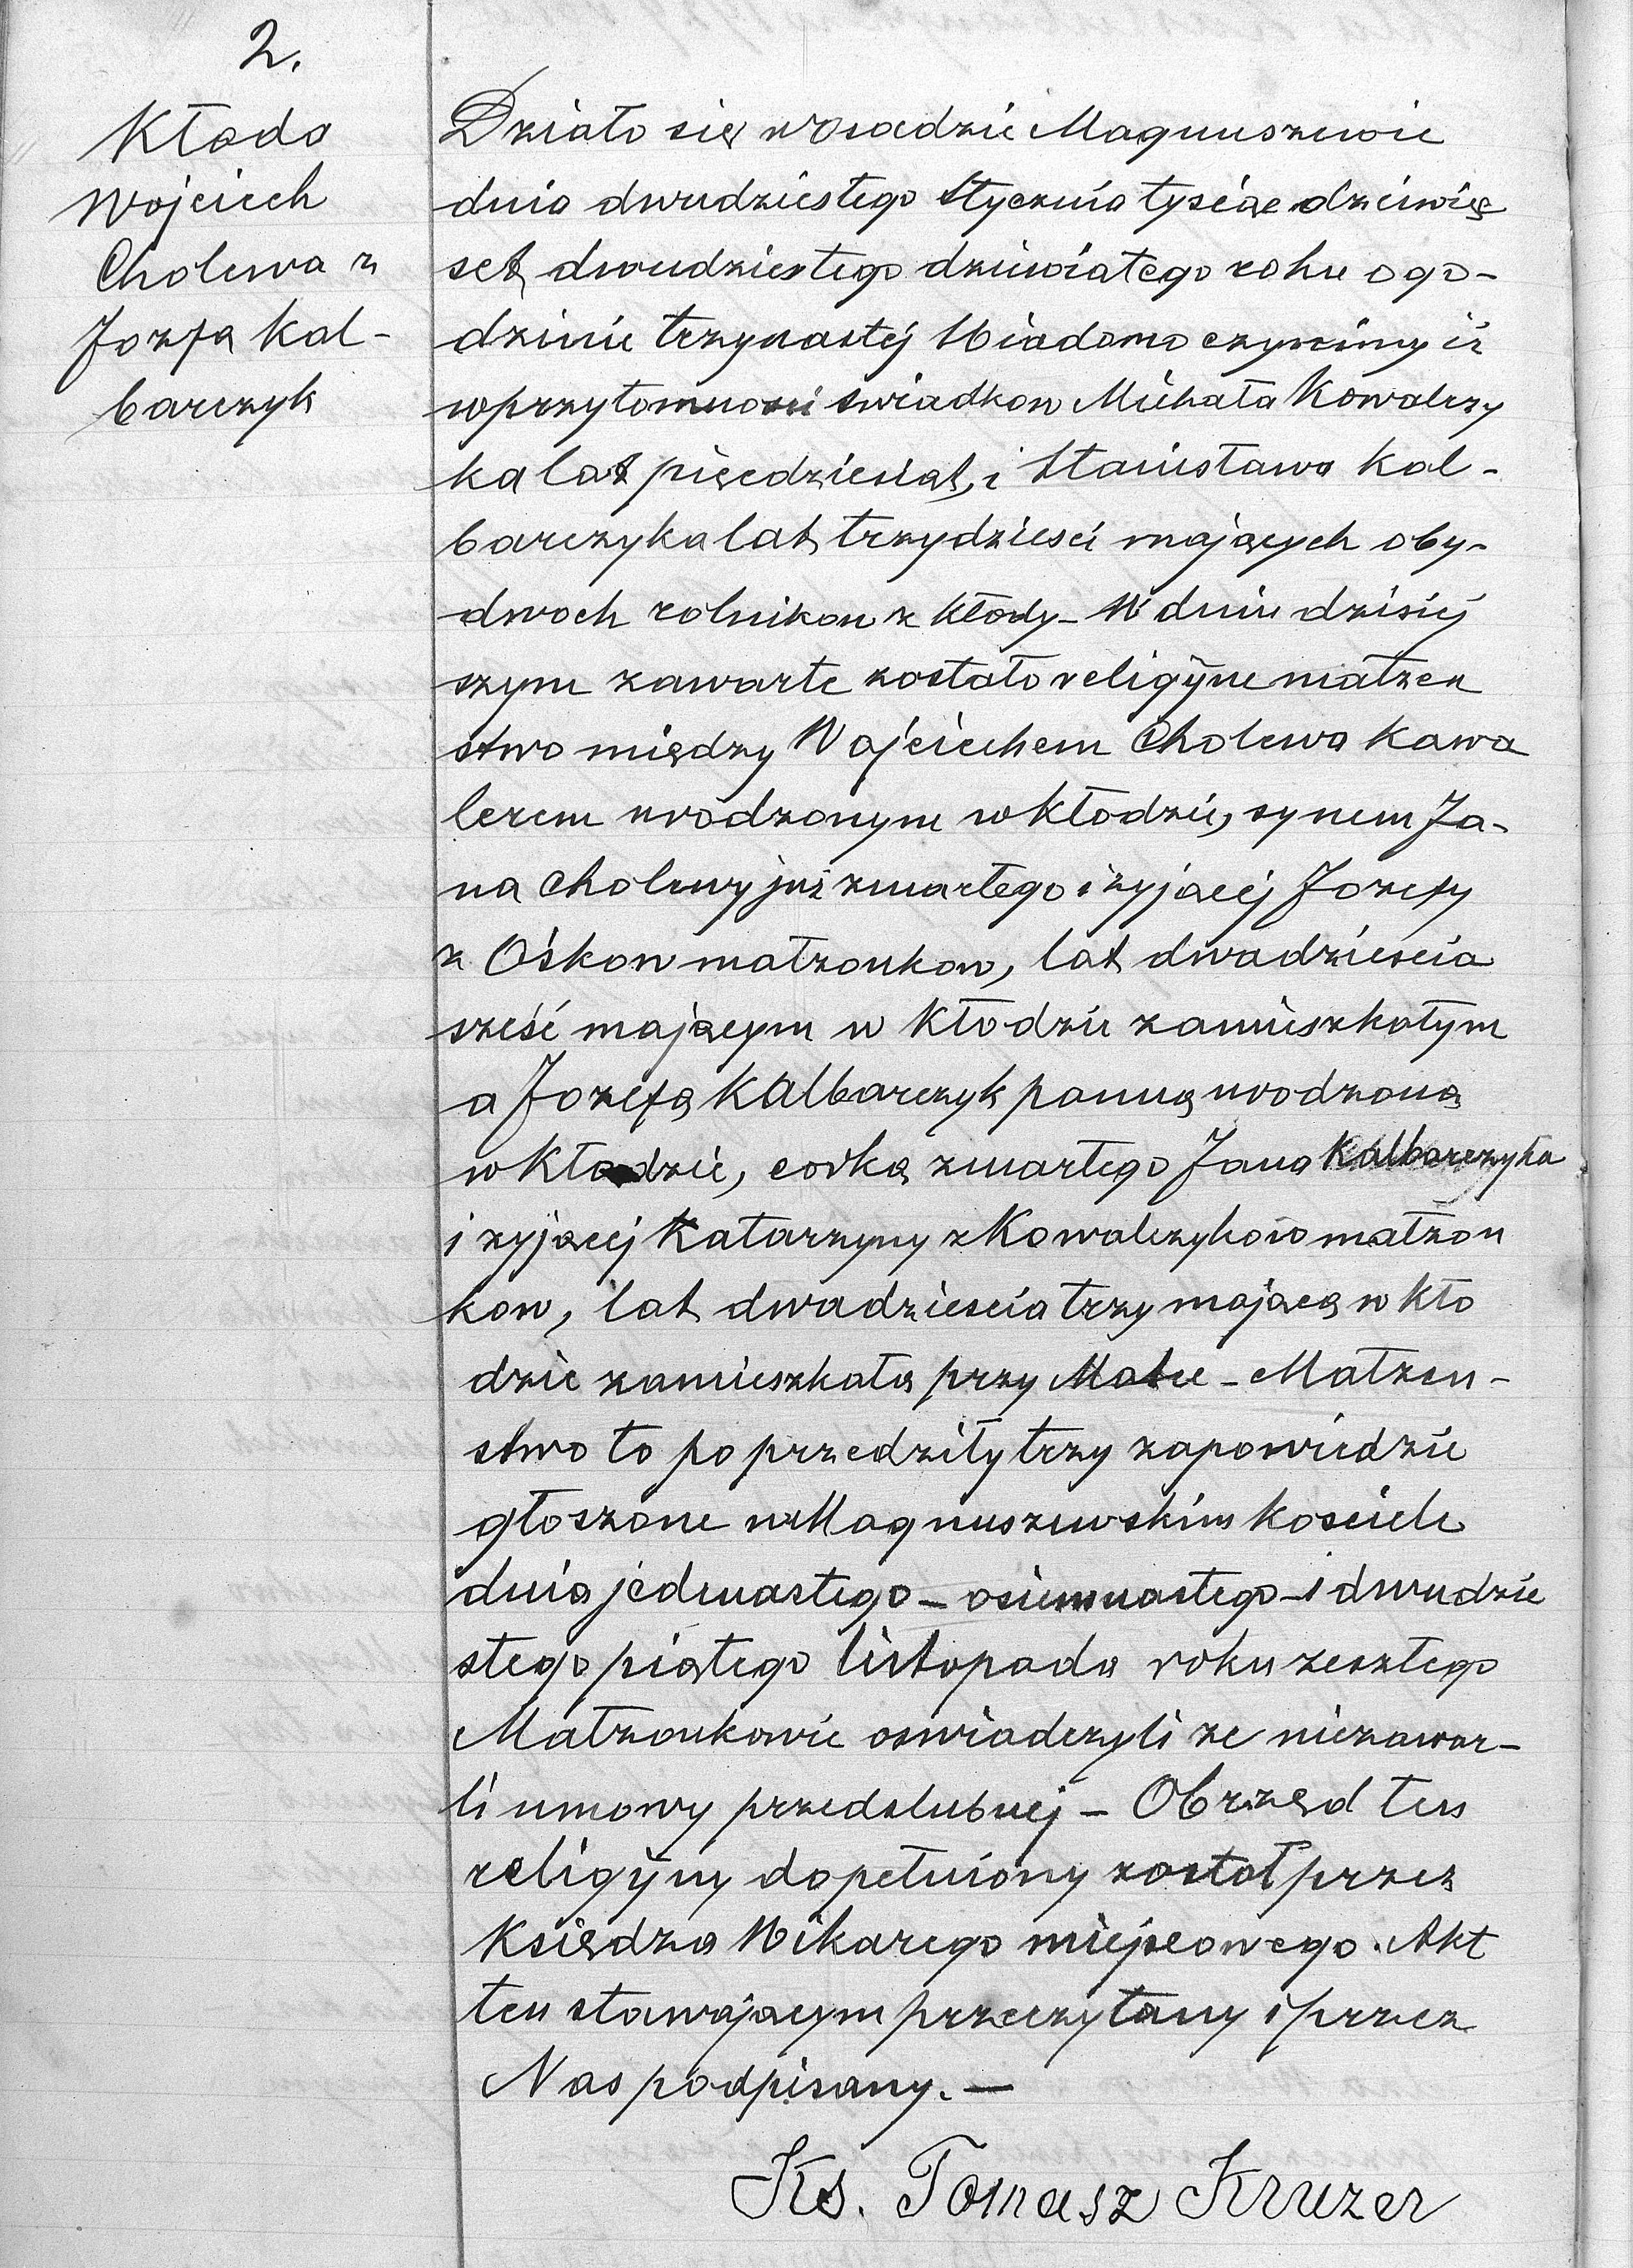 2.
Kłoda
Wojciech
Cholewa z
Jozfą Kal-
barczyk
Działo się w osadzie Magnuszewie
dnia dwudziestego Stycznia tysiąc dziewię
set dwudziestego dziewiatego roku o go-
dzinie trzynastej Wiadomo czynimy iż
w przytomnosci swiadkow Michała Kowalczy
ka lat pięcdziesiąt, i Stanisława Kal-
barczyka lat trzydziesci mających oby-
dwoch rolnikow z Kłody - W dniu dzisiej
szym zawarte zostało religijne małzen
stwo między Wojciechem Cholewa kawa
lerem urodzonym w Kłodzie, synem Ja-
na Cholewy już zmarłego i zyjącej Jozefy
z Ośkow małzonkow, lat dwadziescia
sześć mającym w Kłodzie zamieszkałym
a Jozefą Kalbarczyk panną urodzoną
w Kłodzie, corką zmarłego Jana Kalbarczyka
i zyjącej Katarzyny z Kowalczykow małzon
kow, lat dwadziescia trzy mającą w Kło
dzie zamieszkałą przy Matce - Małzen-
stwo to poprzedziły trzy zapowiedzie
głoszone w Magnuszewskim kosciele
dnia jedenastego - osiemnastego - i dwudzie
stego piątego listopada roku zeszłego
Małzonkowie oswiadczyli ze niezawar-
li umowy przedslubnej - Obrzęd ten
religijny dopełniony został przez
Księdza Wikarego miejscowego. Akt
ten stawającym przeczytany i przez
Nas podpisany. -
Ks. Tomasz Kruzer